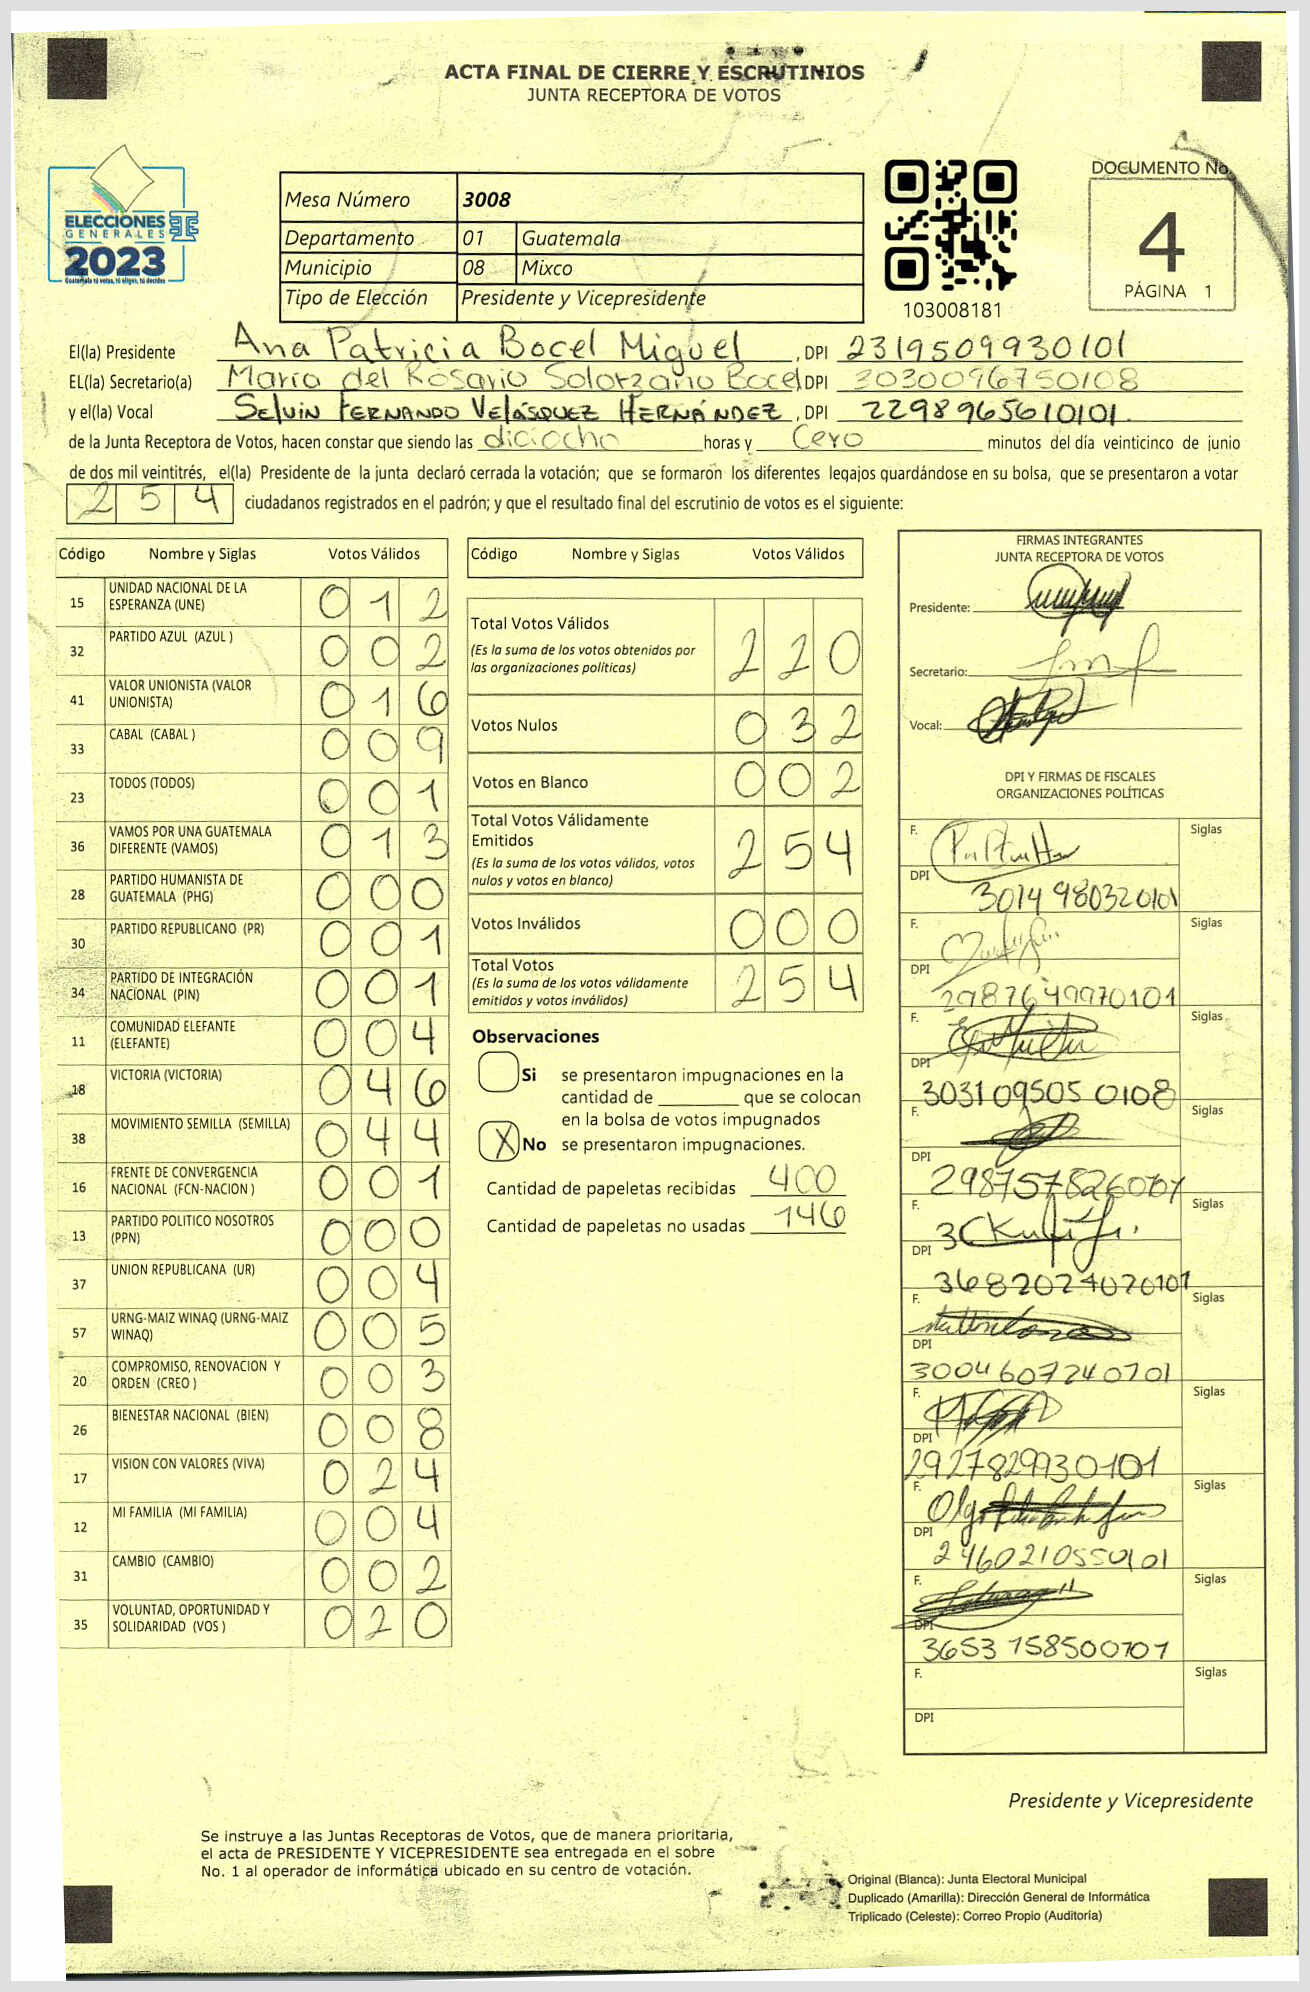 ACTA FINAL DE CIERRE Y ESCRUTINIOS
JUNTA RECEPTORA DE VOTOS
ELECCIONES
GENERALES
2023
Guatemala tú votas, tú eliges, tú decides
Mesa Número 3008
Departamento 01 Guatemala
Municipio 08 Mixco
Tipo de Elección Presidente y Vicepresidente
103008181
DOCUMENTO No.
4
PÁGINA 1
El(la) Presidente Ana Patricia Bocel Miguel, DPI 2319509930101
EL(la) Secretario(a) María del Rosario Solorzano Bocel DPI 3030096750108
y el(la) Vocal SELVIN FERNANDO VELÁSQUEZ HERNÁNDEZ, DPI 2298965610101.
de la Junta Receptora de Votos, hacen constar que siendo las diciocho horas y Cero minutos del día veinticinco de junio
de dos mil veintitrés, el(la) Presidente de la junta declaró cerrada la votación; que se formaron los diferentes legajos guardándose en su bolsa, que se presentaron a votar
254 ciudadanos registrados en el padrón; y que el resultado final del escrutinio de votos es el siguiente:
Código Nombre y Siglas Votos Válidos
15 UNIDAD NACIONAL DE LA ESPERANZA (UNE) 012
32 PARTIDO AZUL (AZUL ) 002
41 VALOR UNIONISTA (VALOR UNIONISTA) 016
33 CABAL (CABAL ) 009
23 TODOS (TODOS) 001
36 VAMOS POR UNA GUATEMALA DIFERENTE (VAMOS) 013
28 PARTIDO HUMANISTA DE GUATEMALA (PHG) 000
30 PARTIDO REPUBLICANO (PR) 001
34 PARTIDO DE INTEGRACIÓN NACIONAL (PIN) 001
11 COMUNIDAD ELEFANTE (ELEFANTE) 004
18 VICTORIA (VICTORIA) 046
38 MOVIMIENTO SEMILLA (SEMILLA) 044
16 FRENTE DE CONVERGENCIA NACIONAL (FCN-NACION ) 001
13 PARTIDO POLITICO NOSOTROS (PPN) 000
37 UNION REPUBLICANA (UR) 004
57 URNG-MAIZ WINAQ (URNG-MAIZ WINAQ) 005
20 COMPROMISO, RENOVACION Y ORDEN (CREO ) 003
26 BIENESTAR NACIONAL (BIEN) 008
17 VISION CON VALORES (VIVA) 024
12 MI FAMILIA (MI FAMILIA) 004
31 CAMBIO (CAMBIO) 002
35 VOLUNTAD, OPORTUNIDAD Y SOLIDARIDAD (VOS ) 020
Código Nombre y Siglas Votos Válidos
Total Votos Válidos 220
(Es la suma de los votos obtenidos por
las organizaciones políticas)
Votos Nulos 032
Votos en Blanco 002
Total Votos Válidamente
Emitidos 254
(Es la suma de los votos válidos, votos
nulos y votos en blanco)
Votos Inválidos 000
Total Votos 254
(Es la suma de los votos válidamente
emitidos y votos inválidos)
Observaciones
Si se presentaron impugnaciones en la
cantidad de ________ que se colocan
en la bolsa de votos impugnados
X No se presentaron impugnaciones.
Cantidad de papeletas recibidas 400
Cantidad de papeletas no usadas 146
FIRMAS INTEGRANTES
JUNTA RECEPTORA DE VOTOS
Presidente:
Secretario:
Vocal:
DPI Y FIRMAS DE FISCALES
ORGANIZACIONES POLÍTICAS
F. Siglas
DPI 3014980320101
F. Siglas
DPI 2987649970101
F. Siglas
DPI 3031095050108
F. Siglas
DPI
F. Siglas
DPI 3682024020101
F. Siglas
DPI 3004607240701
F. Siglas
DPI 2927829930101
F. Olga Siglas
DPI 2460210550101
F. Siglas
DPI 3653158500101
F. Siglas
DPI
Presidente y Vicepresidente
Se instruye a las Juntas Receptoras de Votos, que de manera prioritaria,
el acta de PRESIDENTE Y VICEPRESIDENTE sea entregada en el sobre
No. 1 al operador de informática ubicado en su centro de votación.
Original (Blanca): Junta Electoral Municipal
Duplicado (Amarilla): Dirección General de Informática
Triplicado (Celeste): Correo Propio (Auditoría)